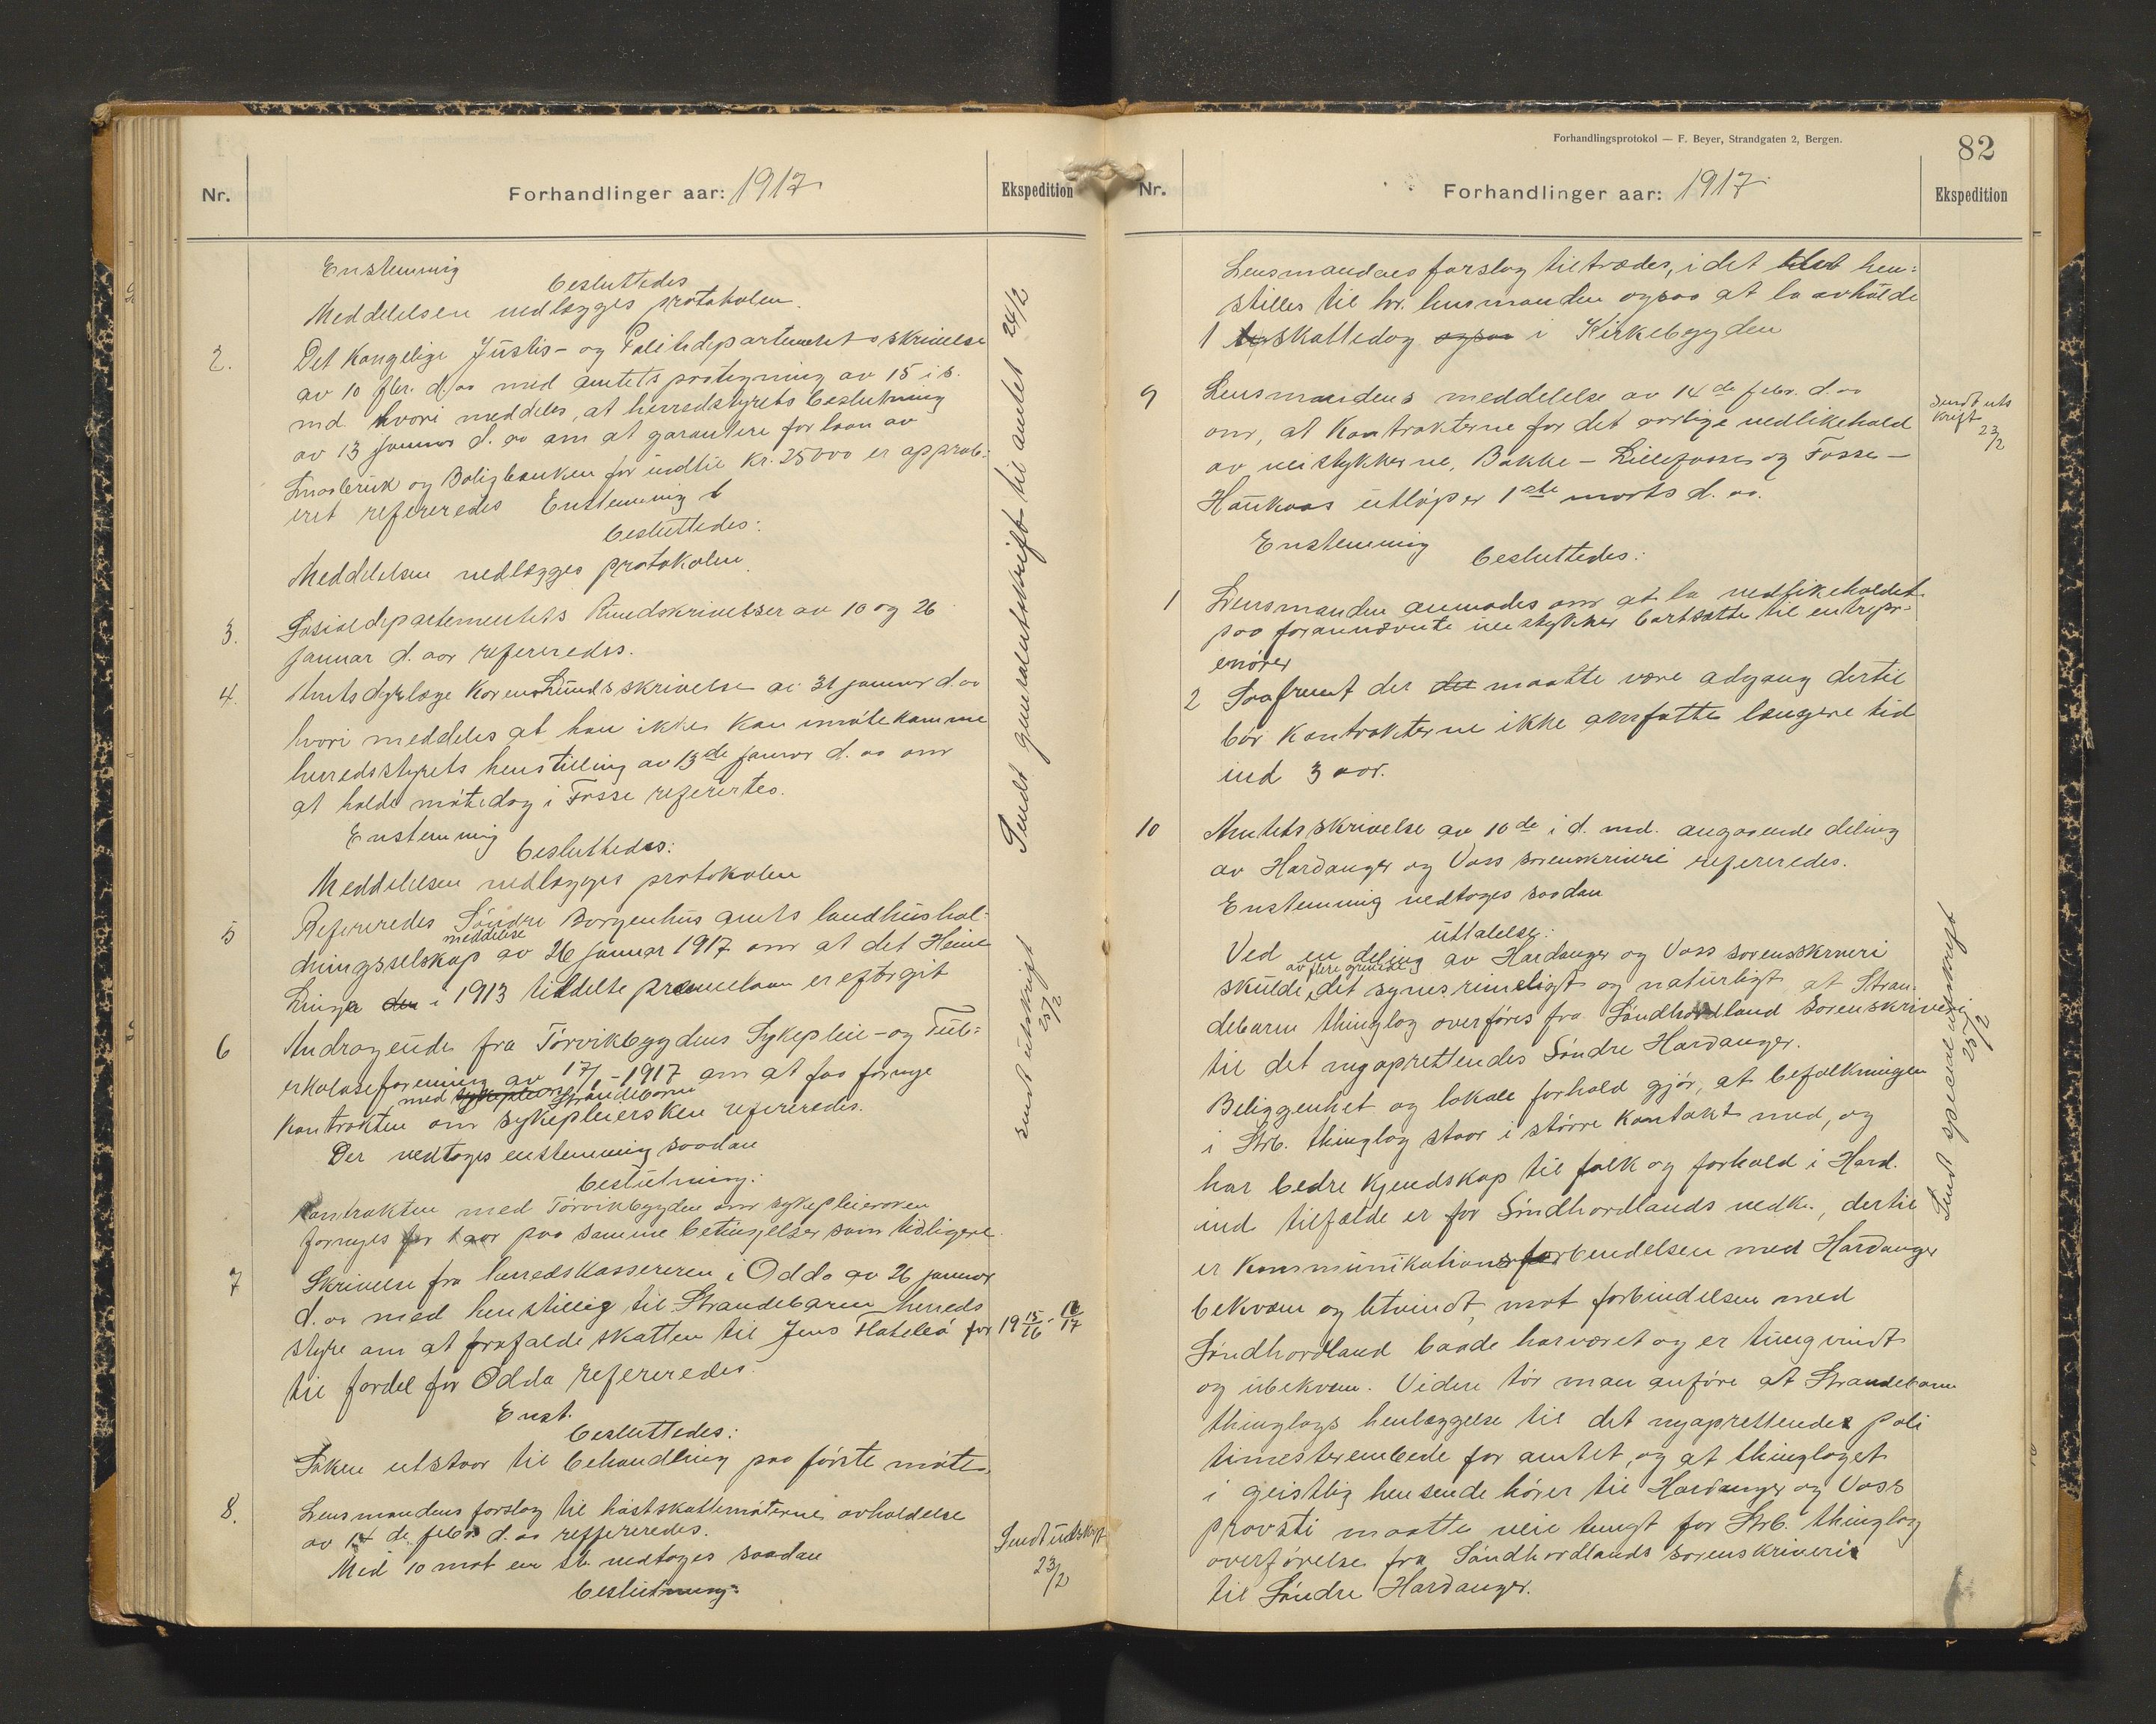 Nr.
Forhandlinger aar: 1917
Ekspedition
Enstemmig
besluttedes
Meddelelsen nedlægges protokolen.
2. Det Kongelige Justis- og Politidepartements skrivelse
av 10 fbr. d. aa med amtets paategning av 15 i s.
md. hvori meddeles, at herredstyrets beslutning
av 13 januar d. aa om at garantere for laan av
Smaabruk og Boligbanken for indtil Kr. 25000 er approb-
eret refereredes Enstemmig b
besluttedes:
Meddelelsen nedlægges protokolen.
3. Sosialdepartementets Rundskrivelser av 10 og 26
januar d. aar refereredes.
4. Amtsdyrlæge Korenslunds skrivelse av 31 januar d. aa
hvori meddeles at han ikke kan imøtekomme
herredsstyrets henstilling av 13de januar d. aa om
at holde møtedag i Fosse refereredes.
Enstemmig
besluttedes:
Meddelelsen nedlægges protokolen
5 Refereredes Söndre Bergenhus amts landhushol-
meddelse
dningsselskap av 26 januar 1917 om at det Heine
Linga den i 1913 tildelte præmielaan er eftergit
6 Andragende fra Törvikbygdens Sykepleie- og Tub-
erkoloseforening av 17/1-1917 om at faa fornye
med sykepleiersk Strandebarm
kontrakten om sykepleiersken refereredes.
Der vedtoges enstemmig saadan
beslutning:
Kontrakten med Törvikbygden om sykepleiersken
fornyes for 1 aar paa samme betingelser som tidligere.
7 Skrivelse fra herredskassereren i Odda av 26 januar
d. aa med henstillig til Strandebarm herreds
styre om at frafalde skatten til Jens Hatlelö for 19 15/16 - 16/17
til fordel for Odda refereredes.
Enst.
besluttedes:
Saken utstaar til behandling paa förste möte.
8. Lensmandens forslag til höstskattemöternes avholdelse
av 14 de febr d. aa reffereredes.
Med 10 mot en st. vedtoges saadan
beslutning:
Sendt generalutskrift til amtet 24/2
sendt utskrift 25/2
Sendt utskrift
23/2
Forhandlingsprotokol — F. Beyer, Strandgaten 2, Bergen.
82
Nr.
Forhandlinger aar: 1917
Ekspedition
Lensmandens forslag tiltrædes, i det hen-
stilles til hr. lensmanden ogsaa at la avholde
1 skattedag ogsaa i Kirkebygden
9 Lensmandens meddelelse av 14de febr. d. aa
om, at Kontrakterne for det aarlige vedlikehold
av veistykkerne, Bakke - Lillefosse og Fosse -
Haukaas utløper 1ste marts d. aa.
Enstemmig
besluttedes:
1 Lensmanden anmodes om at la vedlikeholdet
paa forannævnte veistykker bortsætte til entrepr-
enörer
2 Saafremt der det maatte være adgang dertil
bör Kontrakterne ikke omfatte længere tid
ind 3 aar.
10 Amtets skrivelse av 10de i d. md. angaaende deling
av Hardanger og Voss sorenskriveri refereredes.
Enstemmig vedtoges saadan
uttalelse:
Ved en deling av Hardanger og Voss sorenskriveri
av flere grunde
skulde det synes rimeligt og naturligt at Stran-
debarm thinglag overföres fra Söndhordland Sorenskriveri
til det nyoprettendes Söndre Hardanger.
Beliggenhet og lokale forhold gjör, at befolkningen
i Strb. thinglag staar i större Kontakt med, og
har bedre kjendskap til folk og forhold i Hard.
ind tilfælde er for Söndhordlands vedk., dertil
er Kommunikationsforbindelsen med Hardanger
bekvem og letvindt, mot forbindelsen med
Söndhordland baade har været og er tungvindt
og ubekvem. Videre tör man anföre at Strandebarm
thinglags henlæggelse til det nyoprettendes poli
timesterembede for amtet, og at thinglaget
i geistlig henseende hörer til Hardanger og Voss
provsti maatte veie tungt for Strb. thinglag
overförelse fra Söndhordlands sorenskriveri
til Söndre Hardanger.
Sendt uts
krift
23/2
Sendt specialutskrift
25/2